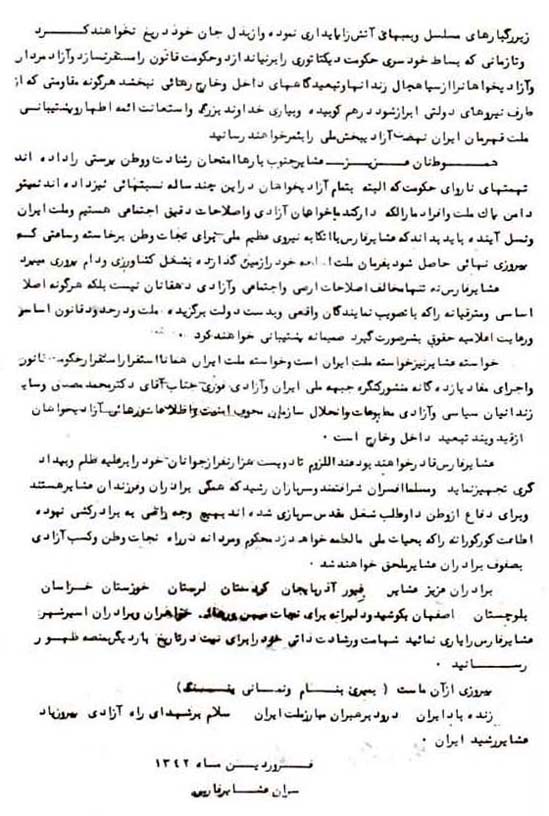 زیر رگبارهای مسلسل و بمبهای آتش زا پایداری نموده و از بذل جان خود دریغ نخواهند کـــرد
و تا زمانی که بساط خود سری حکومت دیکتاتوری را برنیاندازد و حکومت قانون را مستقر نسازد و آزاد مردان
و آزادیخواهان را از سیاهچال زندانها و تبعیدگاههای داخل و خارج رهائی نبخشد هرگونه مقاومتی که از
طرف نیروهای دولتی ابراز شود درهم کوبیده و بیاری خداوند بزرگ و استعانت ائمه اطهار و پشتیبانی
ملت قهرمان ایران نهضت آزادیبخش ملی را بثمر خواهند رسانید
هـــموطنان عـــزیـــز ــ عشایر جنوب بارها امتحان رشادت و وطن پرستی را داده اند
تهمتهای ناروای حکومت که البته بتمام آزادیخواهان در این چند ساله نسبتهائی نیز داده اند نمیتو
دامن پاك ملت و افراد ما را لکه دار کند ما خواهان آزادی و اصلاحات دقیق اجتماعی هستیم و ملت ایران
و نسل آینده باید بداند که عشایر فارس با اتکا به نیروی عظیم ملی برای نجات وطن برخاسته و ساعتی کـم
پیروزی نهائی حاصل شود بفرمان ملت اسلحه خود را زمین گذارده بشغل کشاورزی و دام پروری میپرد
عشایر فارس نه تنها مخالف اصلاحات ارضی و اجتماعی و آزادی دهقانان نیست بلکه هرگونه اصلا
اساسی و مترقیانه را که با تصویب نمایندگان واقعی و بدست دولت برگزیده ملت و در حدود قانون اساسو
و رعایت اعلامیه حقوق بشر صورت گیرد صمیمانه پشتیبانی خواهند کرد ۰
خواسته عشایر نیز خواسته ملت ایران است و خواسته ملت ایران همانا استقرار حکومت قانون
و اجرای مفاد یازده گانه منشور کنگره جبهه ملی ایران و آزادی فوری جناب آقای دکتر محمد مصدق و سایـ
زندانیان سیاسی و آزادی مطبوعات و انحلال سازمان امنیت و اطلاعات و رهائی آزادیخواهان
از قید و بند تبعید داخل و خارج است ۰
عشایر فارس قادر خواهند بود عند اللزوم تا دویست هزار نفر از جوانان خود را بر علیه ظلم و بیداد
گری تجهیز نماید و مسلما افسران شرافتمند و سربازان رشید که همگی برادران و فرزندان عشایر هستند
و برای دفاع از وطن داوطلب شغل مقدس سربازی شده اند بهیچ وجه راضی به برادر کشی نبوده
اطاعت کورکورانه را که بحیات ملی ما لطمه خواهد زد محکوم و مردانه در راه نجات وطن و کسب آزادی
بصفوف برادران عشایر ملحق خواهند شد ۰
برادران عزیز عشایر غیور آذربایجان کردستان لرستان خوزستان خـراسـان
بلوچستان اصفهان بکوشید و دلیرانه برای نجات میهن خواهران و برادران اسیر شهر
عشایر فارس را یاری نمائید شهامت و رشادت ذاتی خود را برای ثبت در تاریخ بار دیگر بمنصه ظهـور
رســـانید ۰
پیروزی از آن ماست ( بمیری بنــام و نمــانی بننــگ )
زنده باد ایران درود بر رهبران مبارز ملت ایران سلام بر شهدای راه آزادی پیروز باد
عشایر رشید ایران ۰
فــروردیــن مــاه ۱۳۴۲
سران عشایر فارس